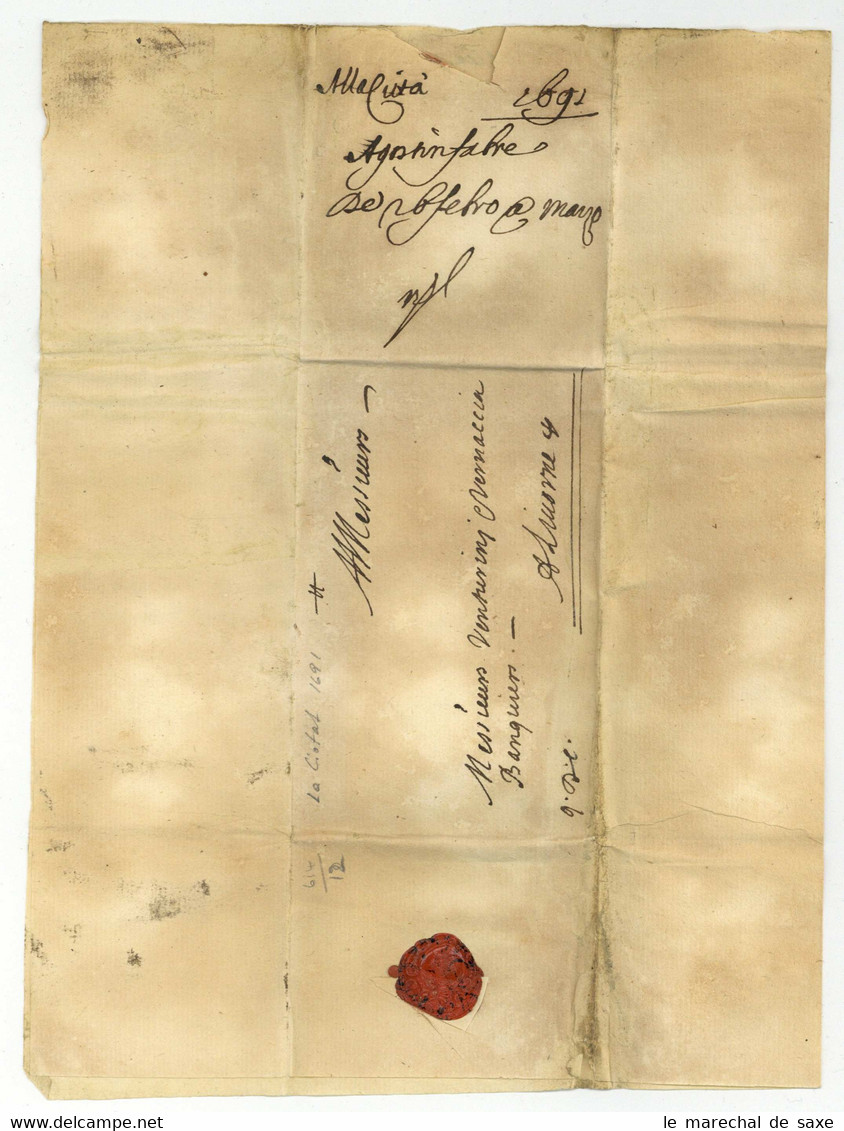 Alla Ciutà 1691
Agostin fabre
De 26 febro a marzo
A Messieurs
Messieurs Venturinj & Vernaccia
Banquiers. —
A Liuorne
La Ciotat 1691
12
le marechal de saxe